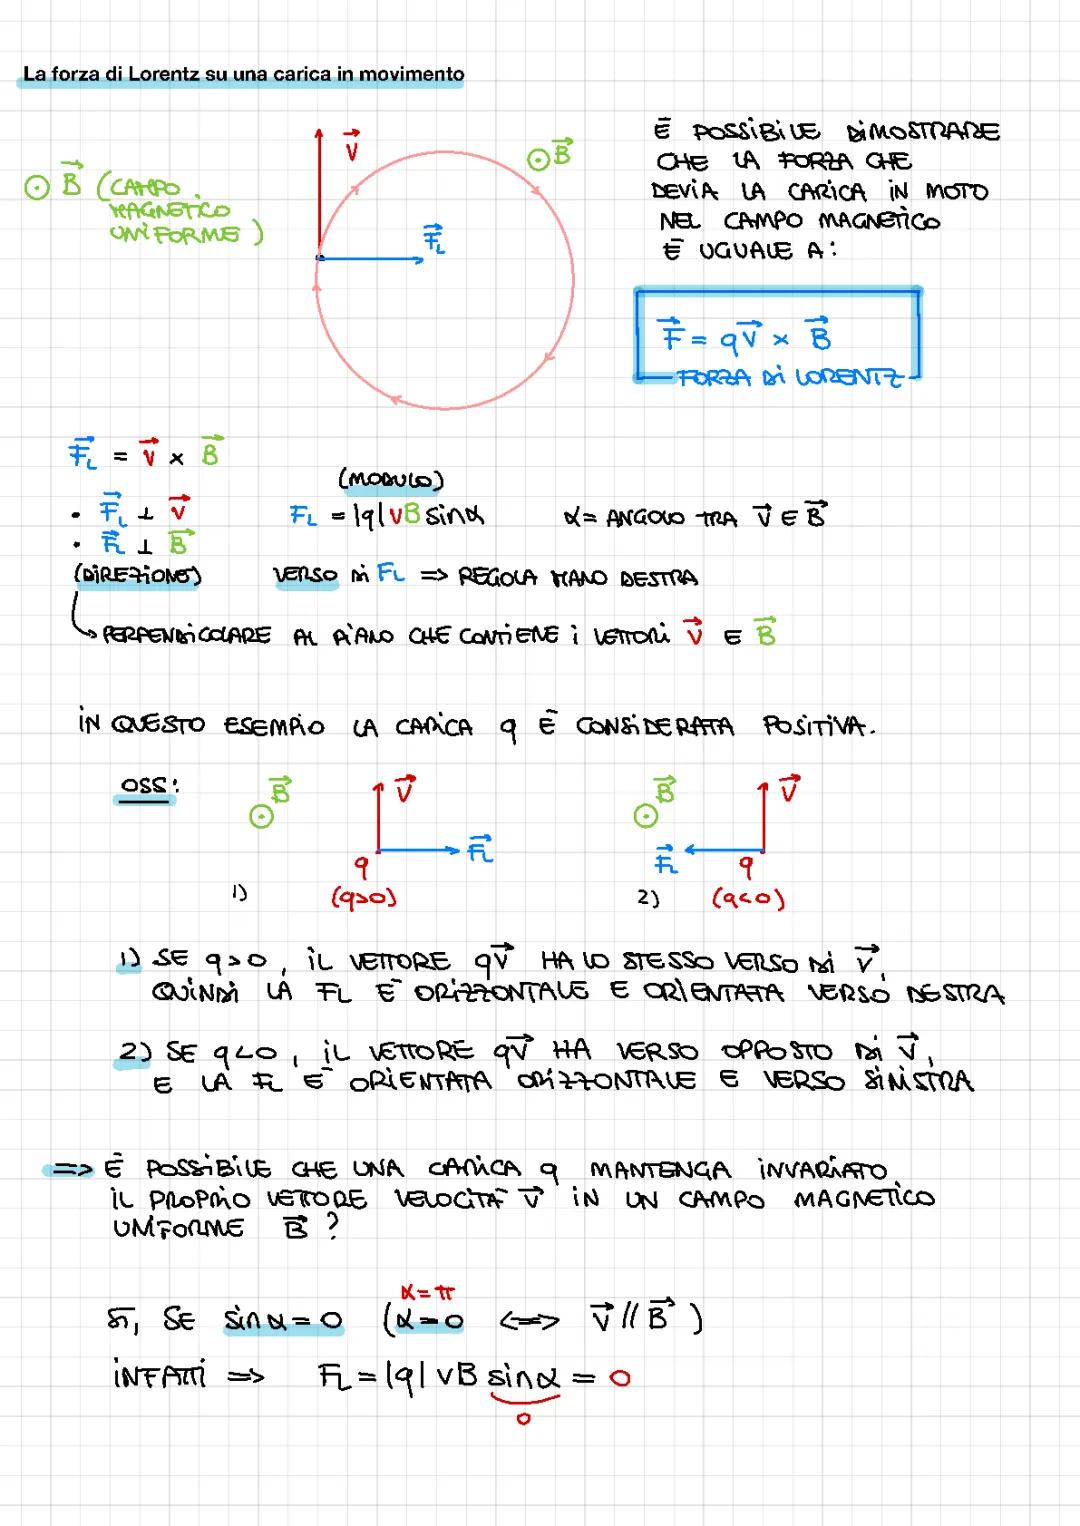 La forza di Lorentz su una carica in movimento
⊙ B⃗ (CAMPO MAGNETICO UNIFORME)
V⃗
⊙ B⃗
F⃗L
È POSSIBILE DIMOSTRARE
CHE LA FORZA CHE
DEVIA LA CARICA IN MOTO
NEL CAMPO MAGNETICO
È UGUALE A:
F⃗ = qV⃗ × B⃗
FORZA DI LORENTZ
F⃗L = V⃗ × B⃗
• F⃗L ⊥ V⃗
• F⃗L ⊥ B⃗
(DIREZIONE)
(MODULO)
FL = |q| vB sinα
α = ANGOLO TRA V⃗ E B⃗
VERSO DI FL => REGOLA MANO DESTRA
↳ PERPENDICOLARE AL PIANO CHE CONTIENE I VETTORI V⃗ E B⃗
IN QUESTO ESEMPIO LA CARICA q È CONSIDERATA POSITIVA.
OSS:
⊙ B⃗
V⃗
F⃗L
q
1) (q>0)
⊙ B⃗
V⃗
F⃗L
q
2) (q<0)
1) SE q>0, IL VETTORE qV⃗ HA LO STESSO VERSO DI V⃗,
QUINDI LA FL È ORIZZONTALE E ORIENTATA VERSO DESTRA
2) SE q<0, IL VETTORE qV⃗ HA VERSO OPPOSTO DI V⃗,
E LA FL È ORIENTATA ORIZZONTALE E VERSO SINISTRA
=> È POSSIBILE CHE UNA CARICA q MANTENGA INVARIATO
IL PROPRIO VETTORE VELOCITÀ V⃗ IN UN CAMPO MAGNETICO
UNIFORME B⃗ ?
α = π
SÌ, SE sinα = 0 (α = 0 <=> V⃗ // B⃗)
INFATTI => FL = |q| vB sinα = 0
0